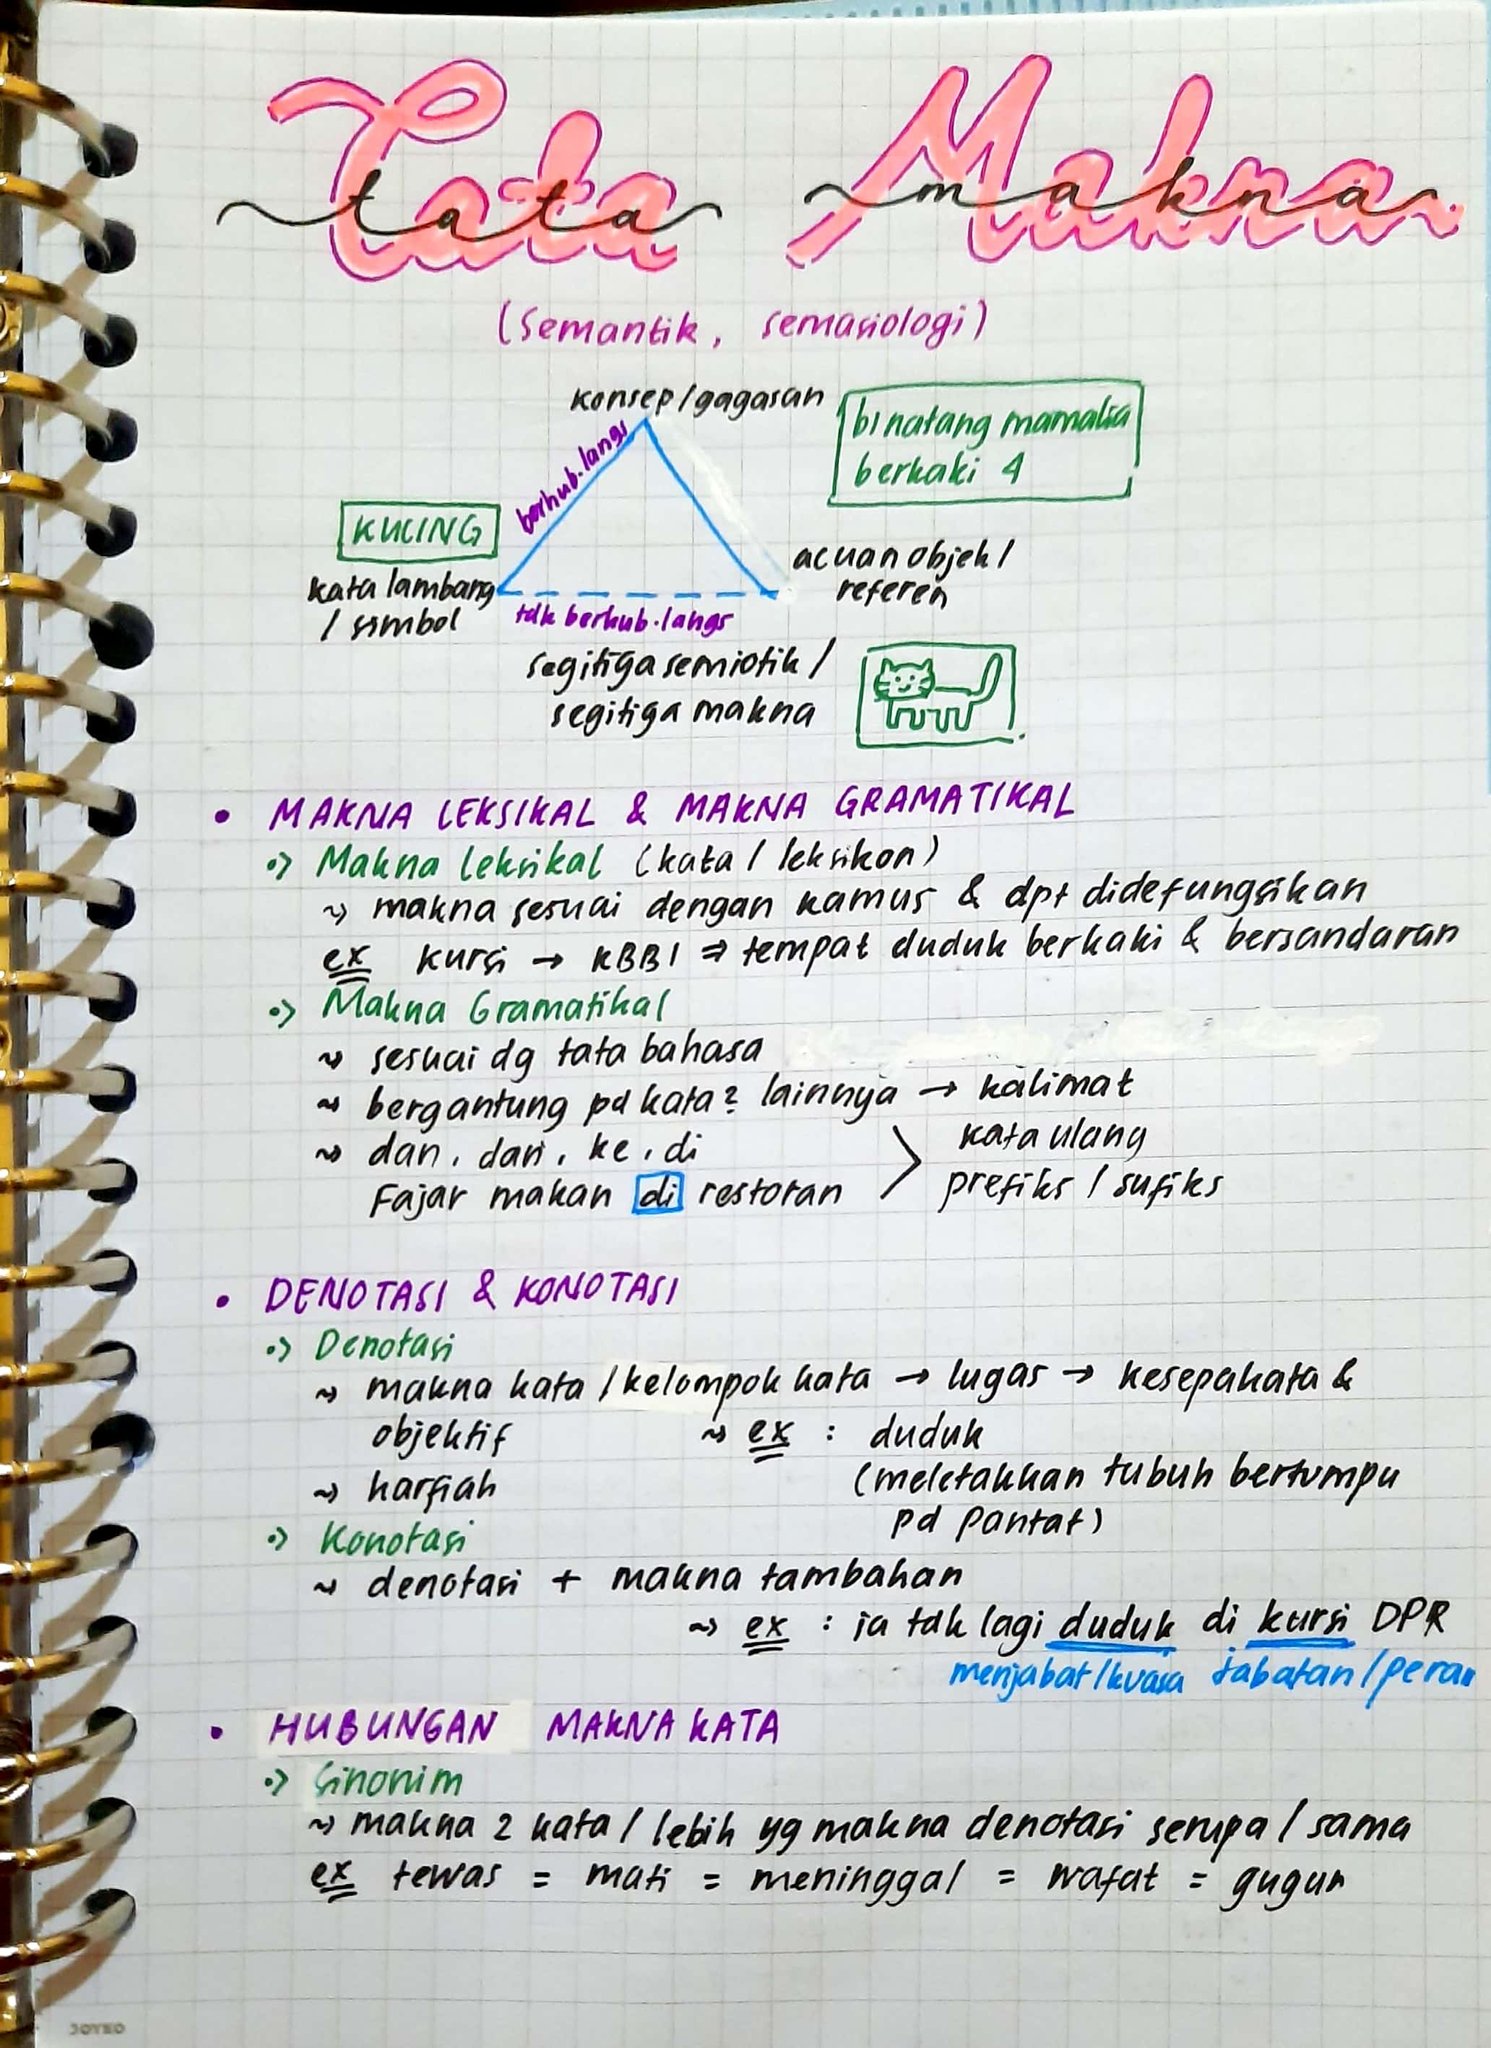 Tata Makna
tata makna
(Semantik, semasiologi)
konsep/gagasan
binatang mamalia
berkaki 4
berhub.langs
KUCING
kata lambang
/ simbol
acuan objek/
referen
tdk berhub.langs
segitiga semiotik /
segitiga makna
• MAKNA LEKSIKAL & MAKNA GRAMATIKAL
Makna leksikal (kata / leksikon)
makna sesuai dengan kamus & dpt didefungsikan
ex kursi → KBBI ⇒ tempat duduk berkaki & bersandaran
Makna Gramatikal
sesuai dg tata bahasa
bergantung pd kata2 lainnya → kalimat
kata ulang
dan, dari, ke, di
prefiks / sufiks
Fajar makan di restoran
• DENOTASI & KONOTASI
Denotasi
makna kata / kelompok kata → lugas → kesepakata &
objektif
ex : duduk
(meletakkan tubuh bertumpu
pd pantat)
harfiah
Konotasi
denotasi + makna tambahan
ex : ia tdk lagi duduk di kursi DPR
menjabat/kuasa jabatan/peran
• HUBUNGAN MAKNA KATA
Sinonim
makna 2 kata / lebih yg makna denotasi serupa / sama
ex tewas = mati = meninggal = wafat = gugur
JOYKO